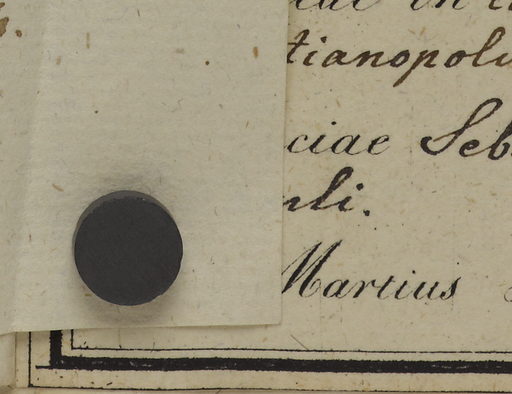 tianopoli
ciae Seb
uli.
Martius